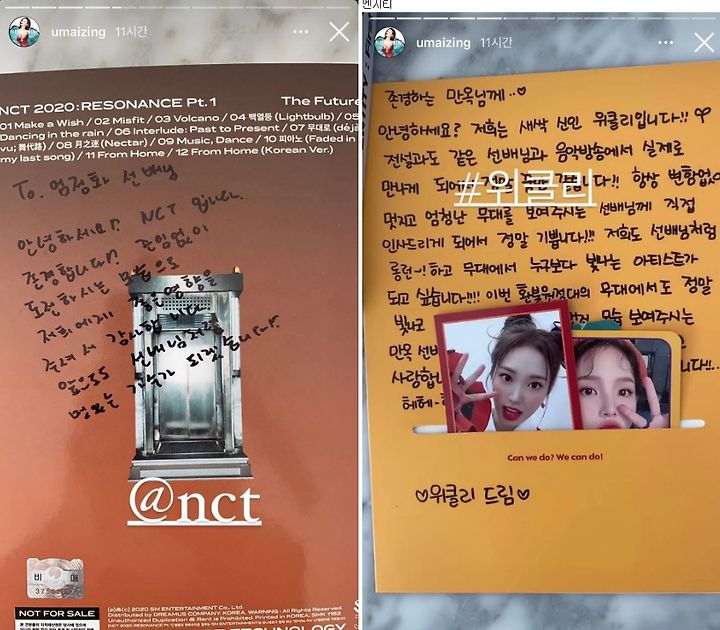 umaizing 11시간
NCT 2020 : RESONANCE Pt. 1 The Future
01 Make a Wish / 02 Misfit / 03 Volcano / 04 백열등 (Lightbulb) / 05
Dancing in the rain / 06 Interlude: Past to Present / 07 무대로 (déjà
vu; 舞代路) / 08 月之迷 (Nectar) / 09 Music, Dance / 10 피아노 (Faded in
my last song) / 11 From Home / 12 From Home (Korean Ver.)
To. 엄정화 선배님
안녕하세요! NCT 입니다.
존경합니다! 끊임없이
도전하시는 모습으로
저희에게 좋은 영향을
주셔서 감사합니다
앞으로도 선배님처럼
멋있는 가수가 되겠습니다!
@nct
비 매
NOT FOR SALE
(p)&(c) 2020 SM ENTERTAINMENT Co., Ltd.
Distributed by DREAMUS COMPANY. KOREA. WARNING : All Rights Reserved.
Unauthorized Duplication & Rent is Prohibited. Printed In KOREA. SMK 1182
TECHNOLOGY
엔시티
umaizing 11시간
존경하는 만옥님께..♡
안녕하세요? 저희는 새싹 신인 위클리입니다!! ♡
전설과도 같은 선배님과 음악방송에서 실제로
만나게 되어 정말 !! 항상 변함없
#위클리
멋지고 엄청난 무대를 보여주시는 선배님께 직접
인사드리게 되어서 정말 기쁩니다!!! 저희도 선배님처럼
롱런~! 하고 무대에서 누구보다 빛나는 아티스트가
되고 싶습니다!!!! 이번 환불원정대의 무대에서도 정말
빛나고 모습 보여주시는
만옥 선배
사랑합니 니다!!..
헤헤~
Can we do? We can do!
♡위클리 드림♡